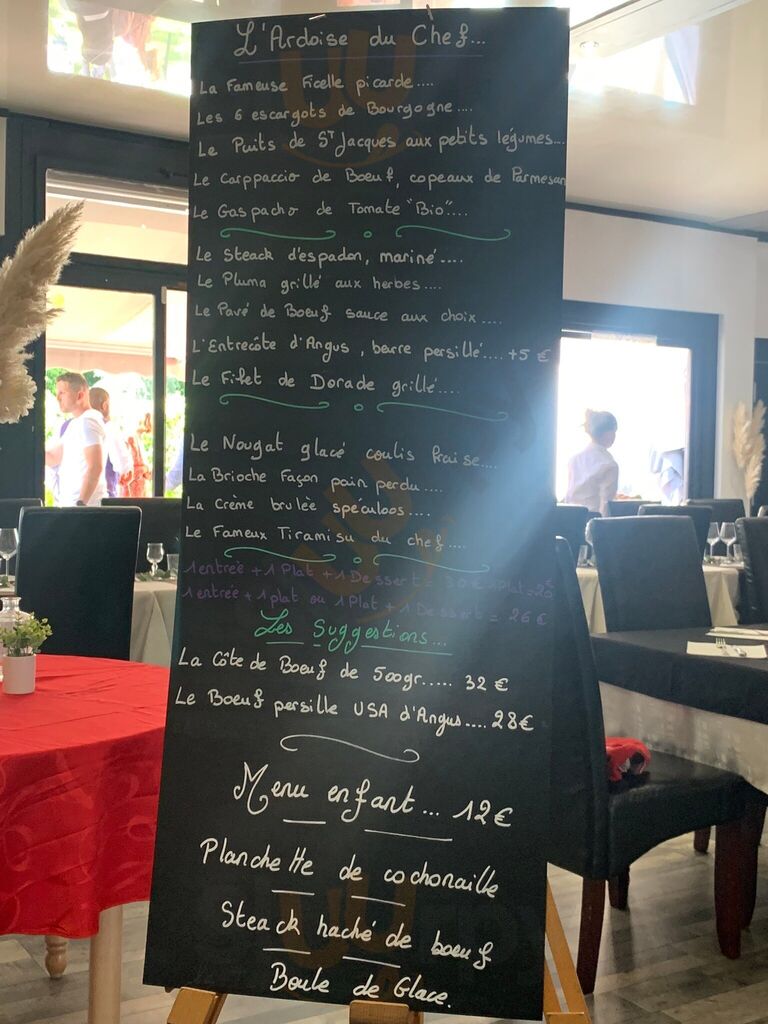 L'Ardoise du Chef...
La Fameuse Ficelle picarde....
Les 6 escargots de Bourgogne....
Le Puits de St Jacques aux petits légumes...
Le Carppaccio de Boeuf, copeaux de Parmesan
Le Gaspacho de Tomate "Bio"....
Le Steack d'espadon, mariné....
Le Pluma grillé aux herbes....
Le Pavé de Boeuf sauce aux choix....
L'Entrecôte d'Angus, beurre persillé.... +5 €
Le Filet de Dorade grillé....
Le Nougat glacé coulis fraise....
La Brioche Façon pain perdu....
La Crème brulèe spéculoos....
Le Fameux Tiramisu du chef....
1 entrée + 1 Plat + 1 Dessert = 30 € 1 Plat = 20€
1 entrée + 1 plat ou 1 Plat + 1 Dessert = 26 €
Les Suggestions...
La Côte de Boeuf de 500gr..... 32 €
Le Boeuf persille USA d'Angus.... 28€
Menu enfant... 12€
Planchette de cochonaille
Steack haché de boeuf
Boule de Glace.